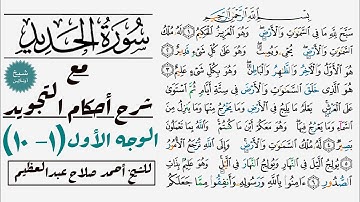 سُورَةُ الحَدِيد
مع
شرح أحكام التجويد
الوجه الأول (١-١٠)
للشيخ أحمد صلاح عبدالعظيم
بِسْمِ ٱللَّهِ ٱلرَّحْمَٰنِ ٱلرَّحِيمِ
سَبَّحَ لِلَّهِ مَا فِي ٱلسَّمَٰوَٰتِ وَٱلْأَرْضِ وَهُوَ ٱلْعَزِيزُ ٱلْحَكِيمُ ١ لَهُۥ مُلْكُ
ٱلسَّمَٰوَٰتِ وَٱلْأَرْضِ يُحْيِۦ وَيُمِيتُ وَهُوَ عَلَىٰ كُلِّ شَيْءٍ قَدِيرٌ ٢
هُوَ ٱلْأَوَّلُ وَٱلْآخِرُ وَٱلظَّٰهِرُ وَٱلْبَاطِنُ وَهُوَ بِكُلِّ شَيْءٍ عَلِيمٌ ٣
هُوَ ٱلَّذِي خَلَقَ ٱلسَّمَٰوَٰتِ وَٱلْأَرْضَ فِي سِتَّةِ أَيَّامٍ ثُمَّ ٱسْتَوَىٰ
عَلَى ٱلْعَرْشِ يَعْلَمُ مَا يَلِجُ فِي ٱلْأَرْضِ وَمَا يَخْرُجُ مِنْهَا وَمَا يَنزِلُ مِنَ
ٱلسَّمَآءِ وَمَا يَعْرُجُ فِيهَا وَهُوَ مَعَكُمْ أَيْنَ مَا كُنتُمْ وَٱللَّهُ بِمَا تَعْمَلُونَ
بَصِيرٌ ٤ لَّهُۥ مُلْكُ ٱلسَّمَٰوَٰتِ وَٱلْأَرْضِ وَإِلَى ٱللَّهِ تُرْجَعُ ٱلْأُمُورُ
٥ يُولِجُ ٱلَّيْلَ فِي ٱلنَّهَارِ وَيُولِجُ ٱلنَّهَارَ فِي ٱلَّيْلِ وَهُوَ عَلِيمٌۢ بِذَاتِ
ٱلصُّدُورِ ٦ ءَامِنُوا۟ بِٱللَّهِ وَرَسُولِهِۦ وَأَنفِقُوا۟ مِمَّا جَعَلَكُم